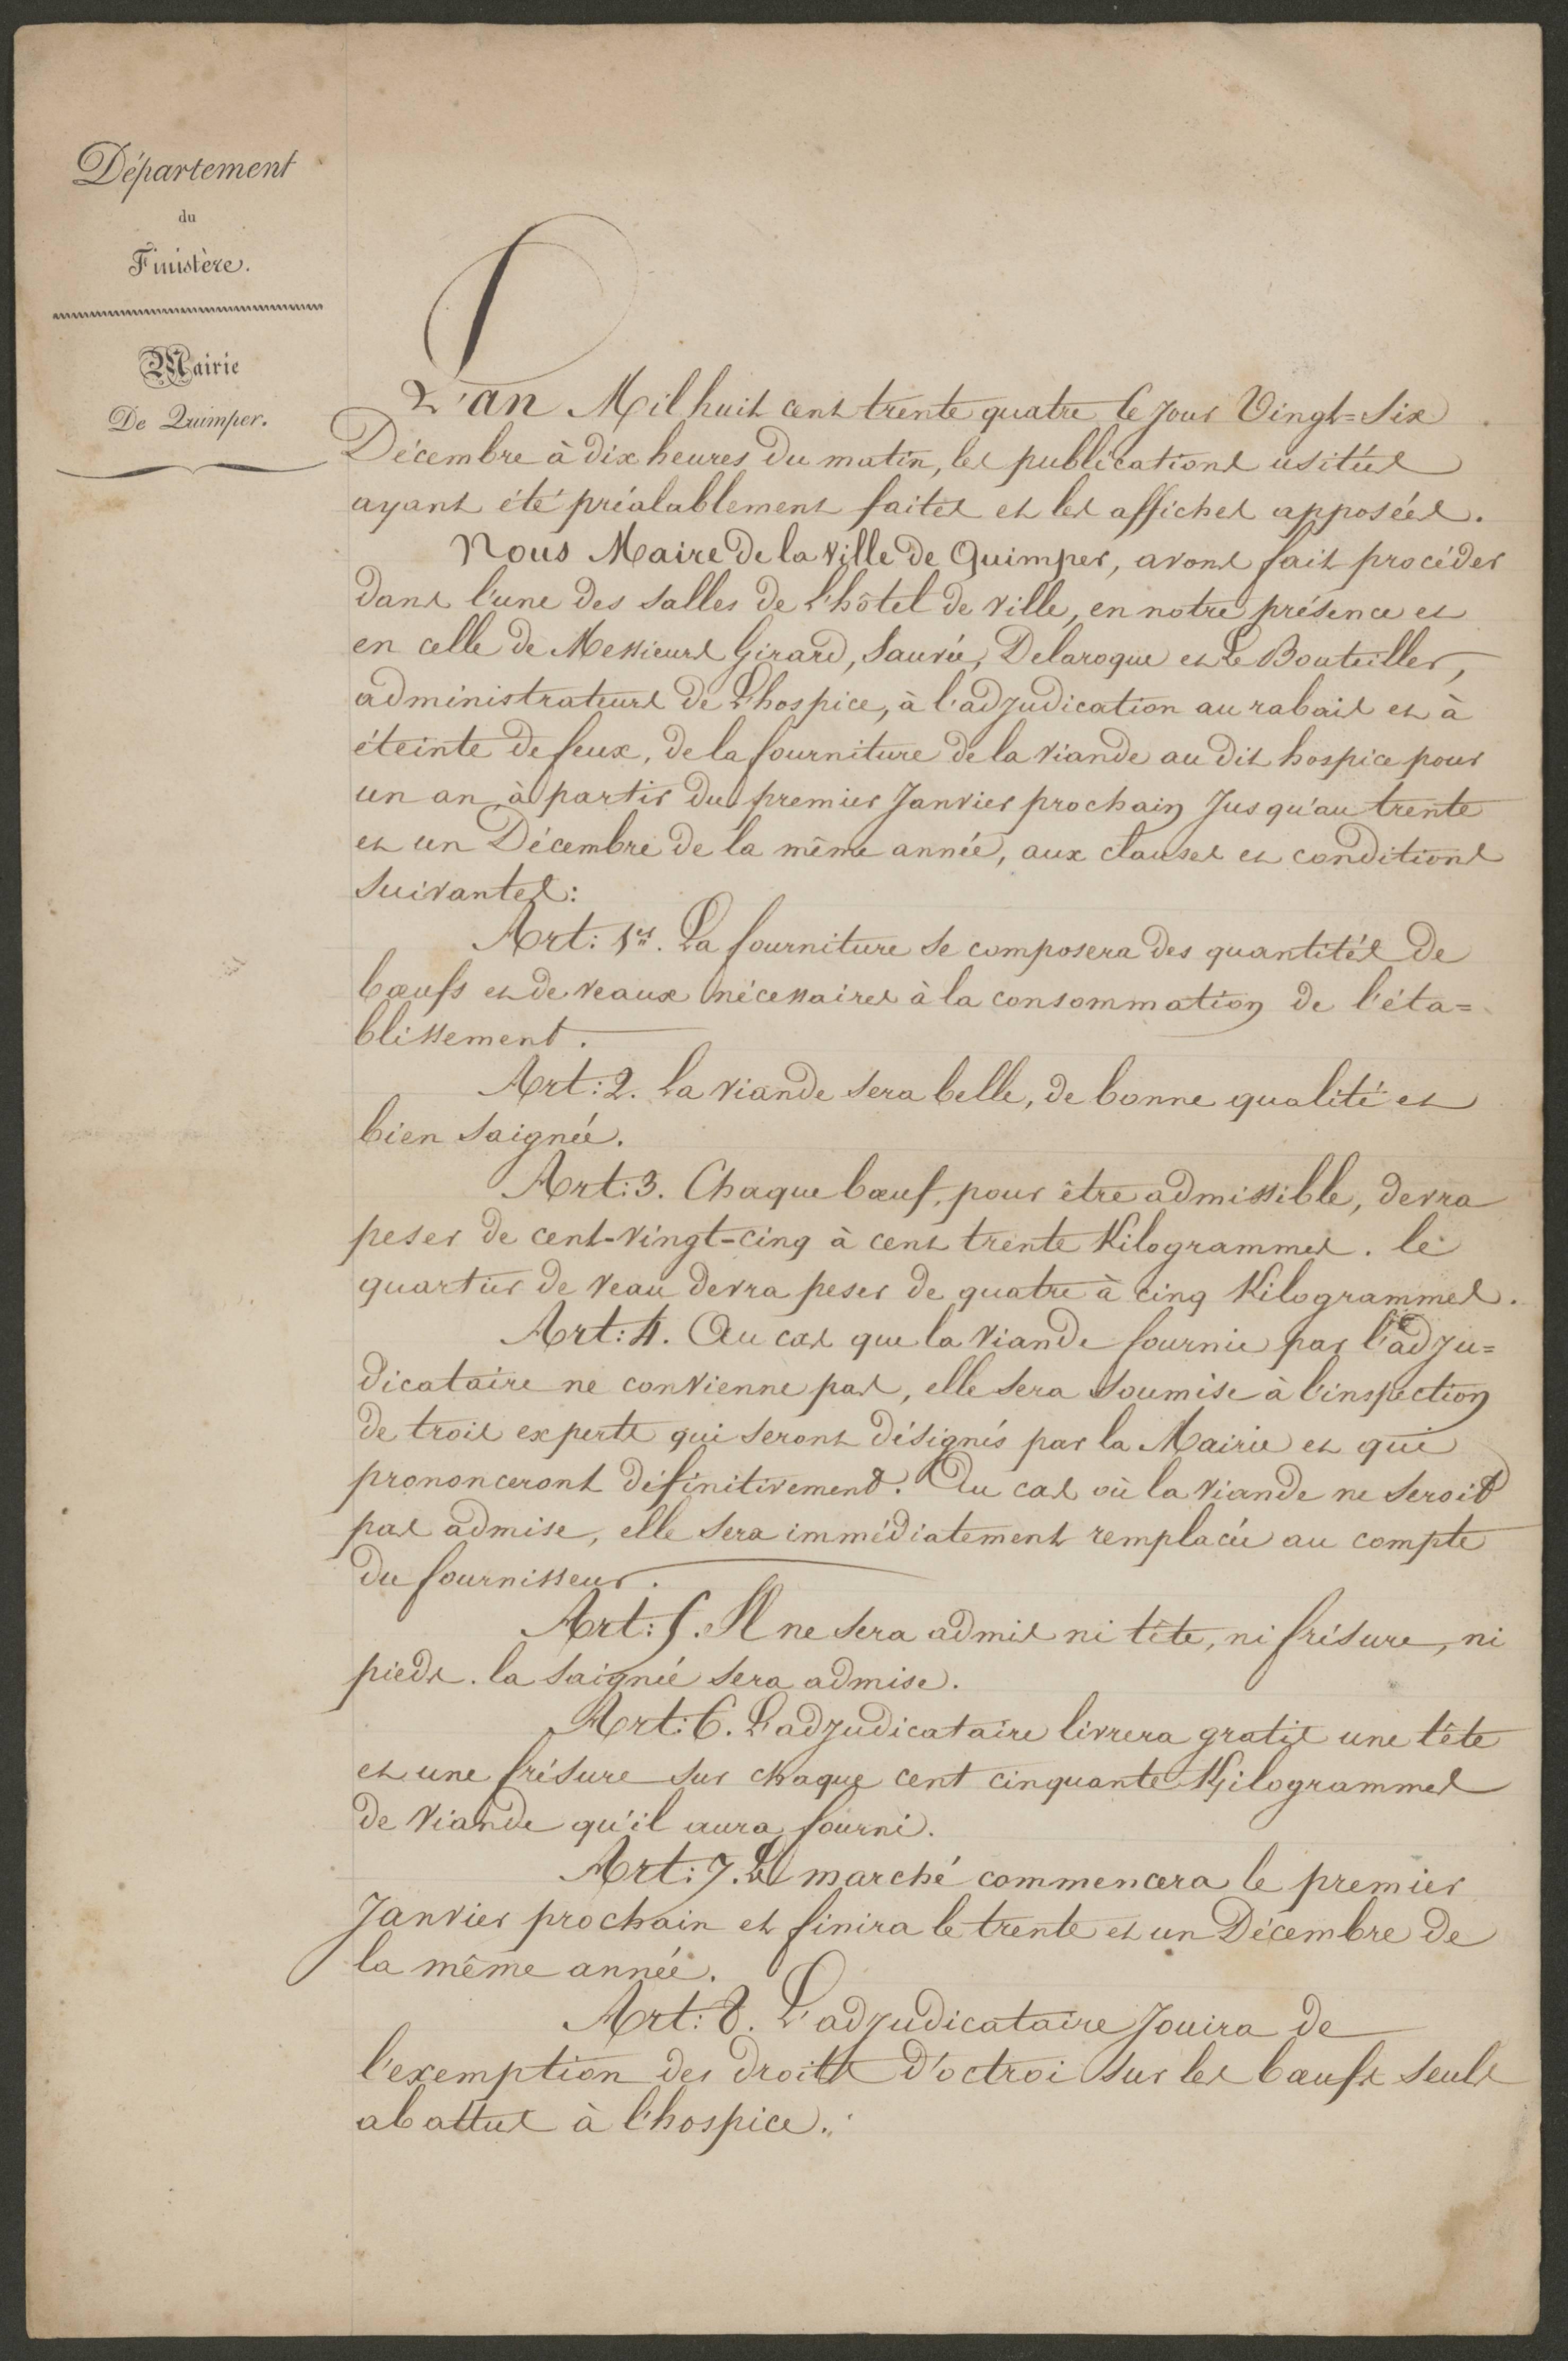 Département
du
Finistère.
Mairie
De Quimper.
L'an Mil huit cent trente quatre le jour Vingt=Six
Décembre à dix heures du matin, les publications usitées
ayant été préalablement faites et les affiches apposées.
Nous Maire de la ville de Quimper, avons fait procéder
dans l'une des salles de l'hôtel de ville, en notre présence et
en celle de Messieurs Girard, Sauvée, Delaroque et Le Bouteiller,
administrateurs de l'hospice, à l'adjudication au rabais et à
éteinte de feux, de la fourniture de la viande au dit hospice pour
un an, à partir du premier Janvier prochain jusqu'au trente
et un Décembre de la même année, aux clauses et conditions
suivantes:
Art: 1er. La fourniture se composera des quantités de
bœufs et de veaux nécessaires à la consommation de l'éta=
blissement.
Art: 2. La viande sera belle, de bonne qualité et
bien saignée.
Art: 3. Chaque bœuf, pour être admissible, devra
peser de cent-vingt-cinq à cent trente Kilogrammes. le
quartier de veau devra peser de quatre à cinq Kilogrammes.
Art: 4. Au cas que la viande fournie par l'adju=
dicataire ne convienne pas, elle sera soumise à l'inspection
de trois experts qui seront désignés par la Mairie et qui
prononceront définitivement. Au cas où la viande ne seroit
pas admise, elle sera immédiatement remplacée au compte
du fournisseur.
Art: 5. Il ne sera admis ni tête, ni frésure, ni
pieds. la saignée sera admise.
Art: 6. L'adjudicataire livrera gratis une tête
et une frésure sur chaque cent cinquante Kilogrammes
de viande qu'il aura fourni.
Art: 7. Le marché commencera le premier
Janvier prochain et finira le trente et un Décembre de
la même année.
Art: 8. L'adjudicataire jouira de
l'exemption des droits d'octroi sur les bœufs seuls
abattus à l'hospice.